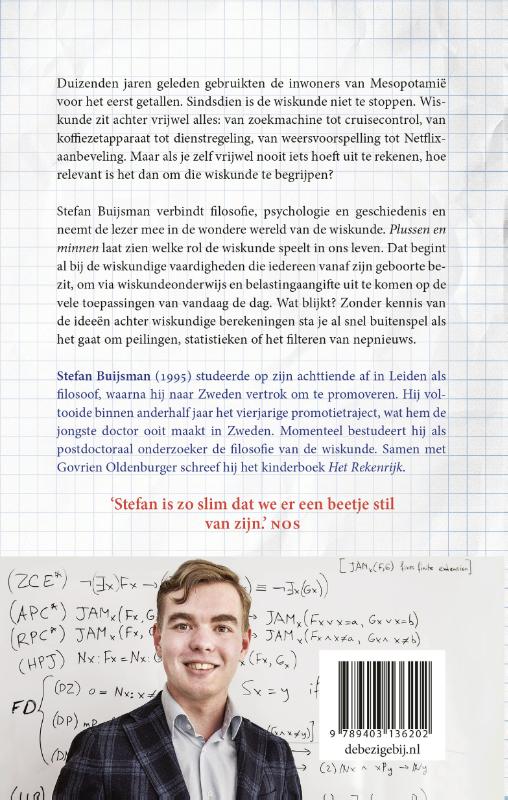 Duizenden jaren geleden gebruikten de inwoners van Mesopotamië
voor het eerst getallen. Sindsdien is de wiskunde niet te stoppen. Wis-
kunde zit achter vrijwel alles: van zoekmachine tot cruisecontrol, van
koffiezetapparaat tot dienstregeling, van weersvoorspelling tot Netflix-
aanbeveling. Maar als je zelf vrijwel nooit iets hoeft uit te rekenen, hoe
relevant is het dan om die wiskunde te begrijpen?
Stefan Buijsman verbindt filosofie, psychologie en geschiedenis en
neemt de lezer mee in de wondere wereld van de wiskunde. Plussen en
minnen laat zien welke rol de wiskunde speelt in ons leven. Dat begint
al bij de wiskundige vaardigheden die iedereen vanaf zijn geboorte be-
zit, om via wiskundeonderwijs en belastingaangifte uit te komen op de
vele toepassingen van vandaag de dag. Wat blijkt? Zonder kennis van
de ideeën achter wiskundige berekeningen sta je al snel buitenspel als
het gaat om peilingen, statistieken of het filteren van nepnieuws.
Stefan Buijsman (1995) studeerde op zijn achttiende af in Leiden als
filosoof, waarna hij naar Zweden vertrok om te promoveren. Hij vol-
tooide binnen anderhalf jaar het vierjarige promotietraject, wat hem de
jongste doctor ooit maakt in Zweden. Momenteel bestudeert hij als
postdoctoraal onderzoeker de filosofie van de wiskunde. Samen met
Govrien Oldenburger schreef hij het kinderboek Het Rekenrijk.
‘Stefan is zo slim dat we er een beetje stil
van zijn.’ NOS
[JAMx(F,G) fixes finite extension]
(ZCE*) ¬(∃x)Fx → ≡ ¬∃x(Gx))
(APC*) JAMx(Fx, G → JAMx(Fx∨x=a, Gx∨x=b)
(RPC*) JAMx(Fx, G → JAMx(Fx∧x≠a, Gx∧x≠b)
(HPJ) Nx: Fx = Nx: (Fx, Gx)
FD (DZ) 0 = Nx: x≠ Sx = y if
(DP)
9 789403 136202
debezigebij.nl